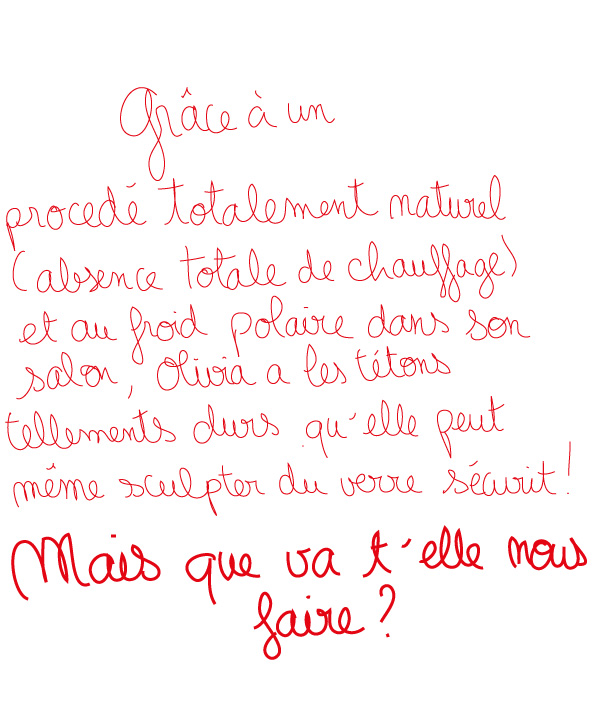 Grâce à un
procedé totalement naturel
(absence totale de chauffage)
et au froid polaire dans son
salon, Olivia a les tétons
tellements durs qu'elle peut
même sculpter du verre sécurit!
Mais que va t'elle nous
faire?